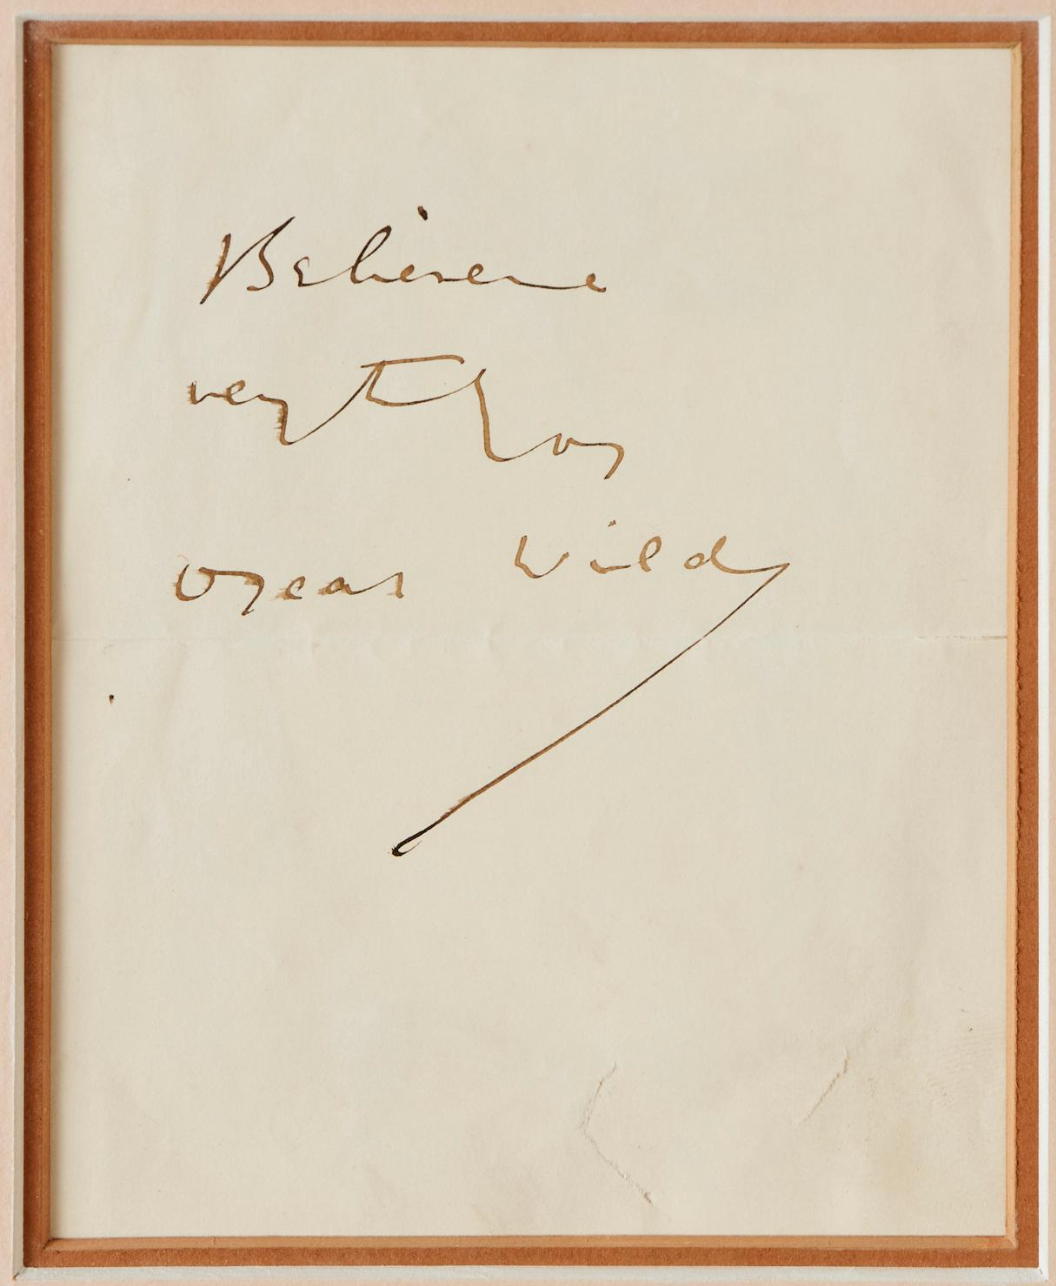 Believe me
very truly yours
Oscar Wilde